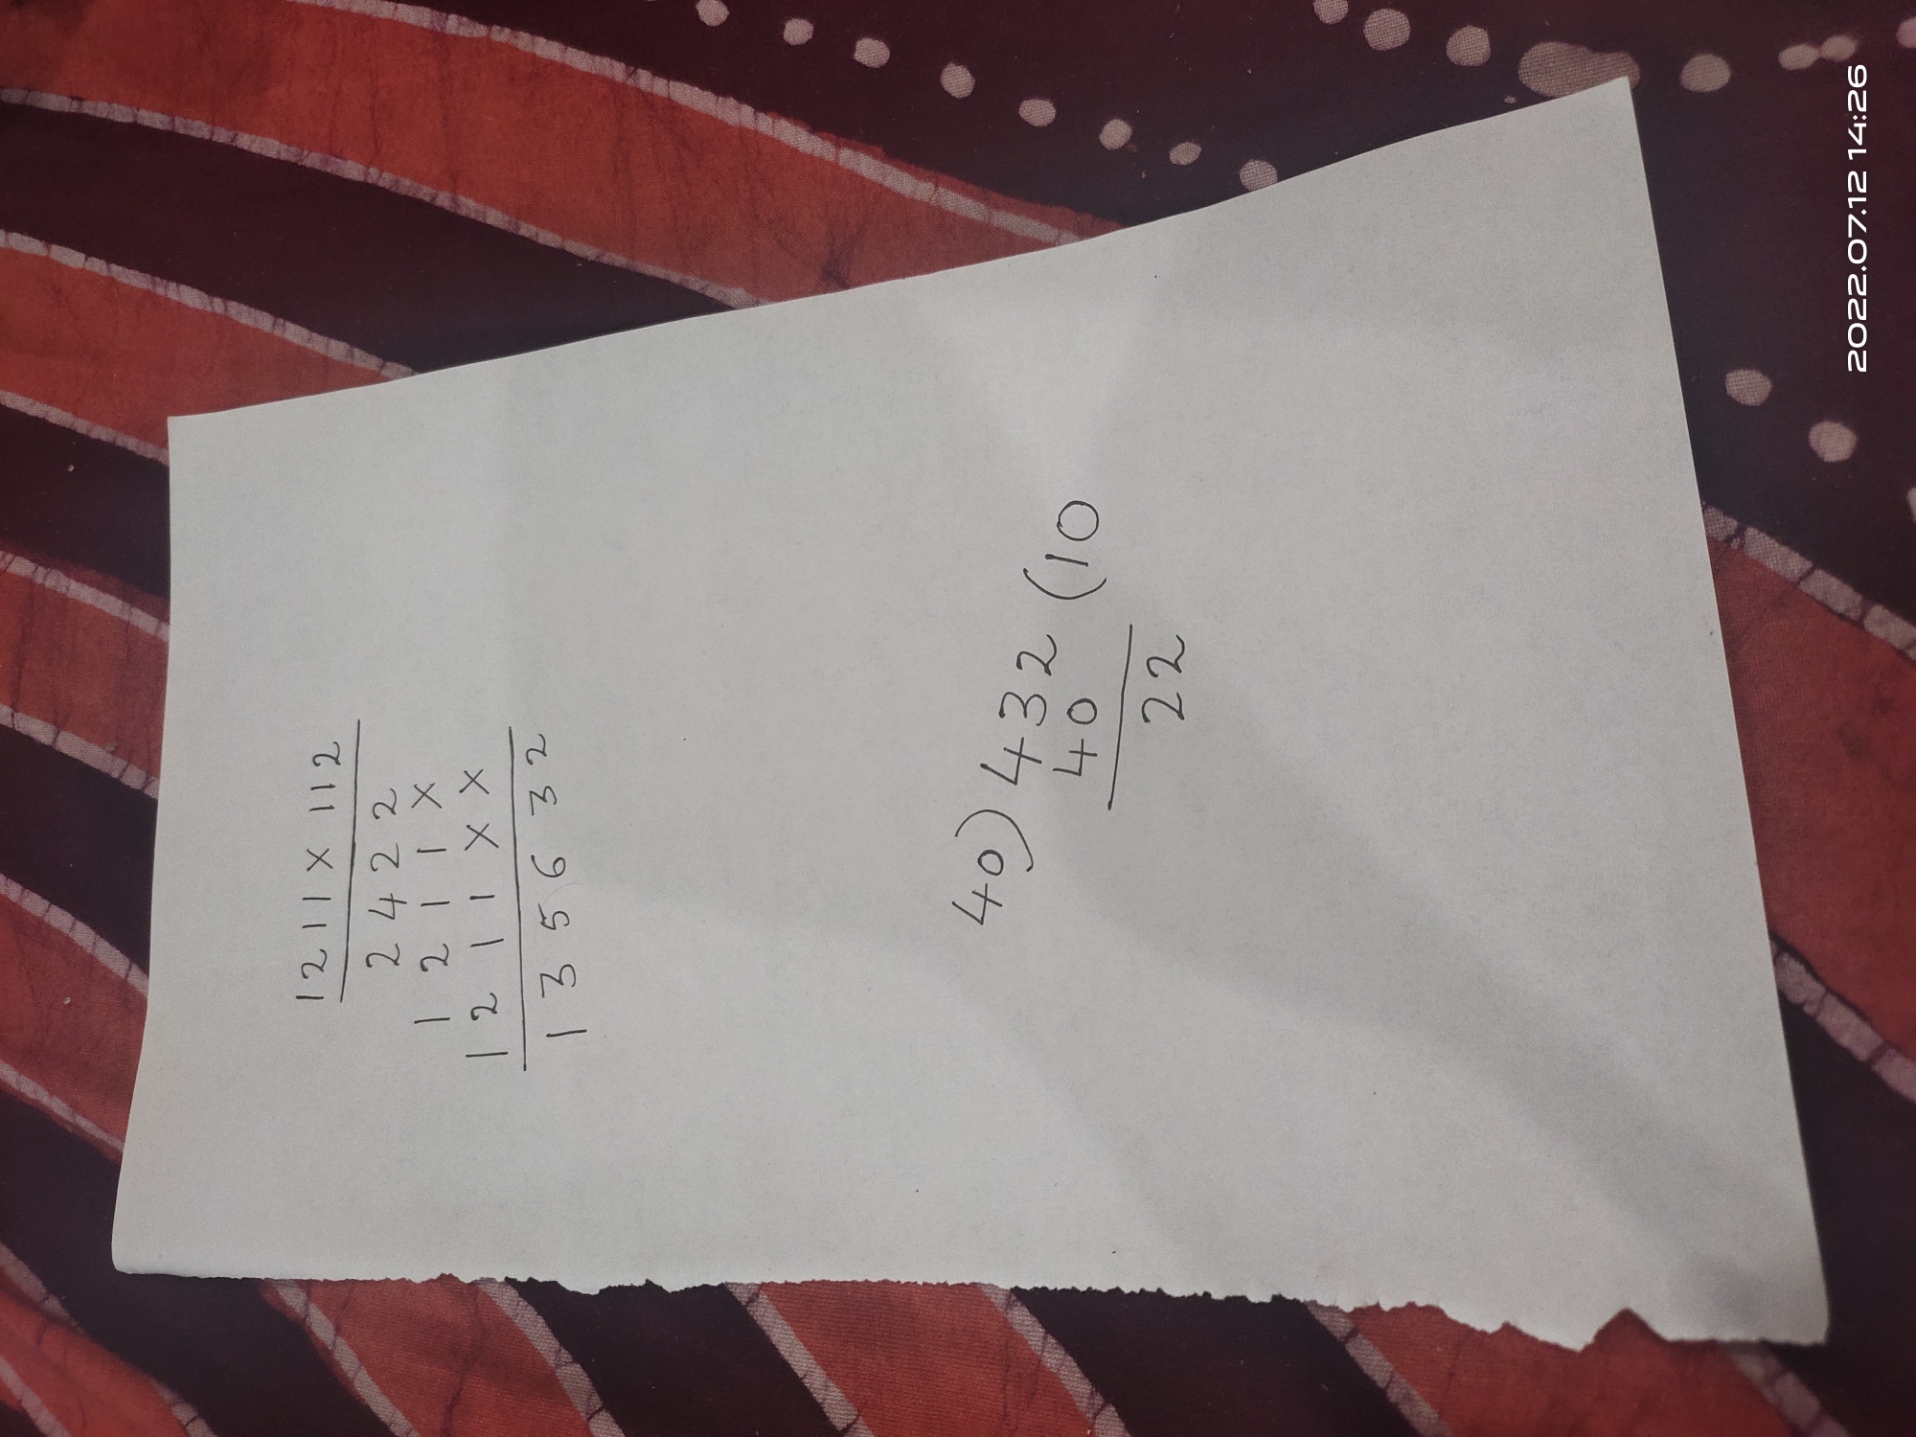 1211 x 112
2422
1211x
1211xx
135632
40) 432 (10
40
22
2022.07.12 14:26